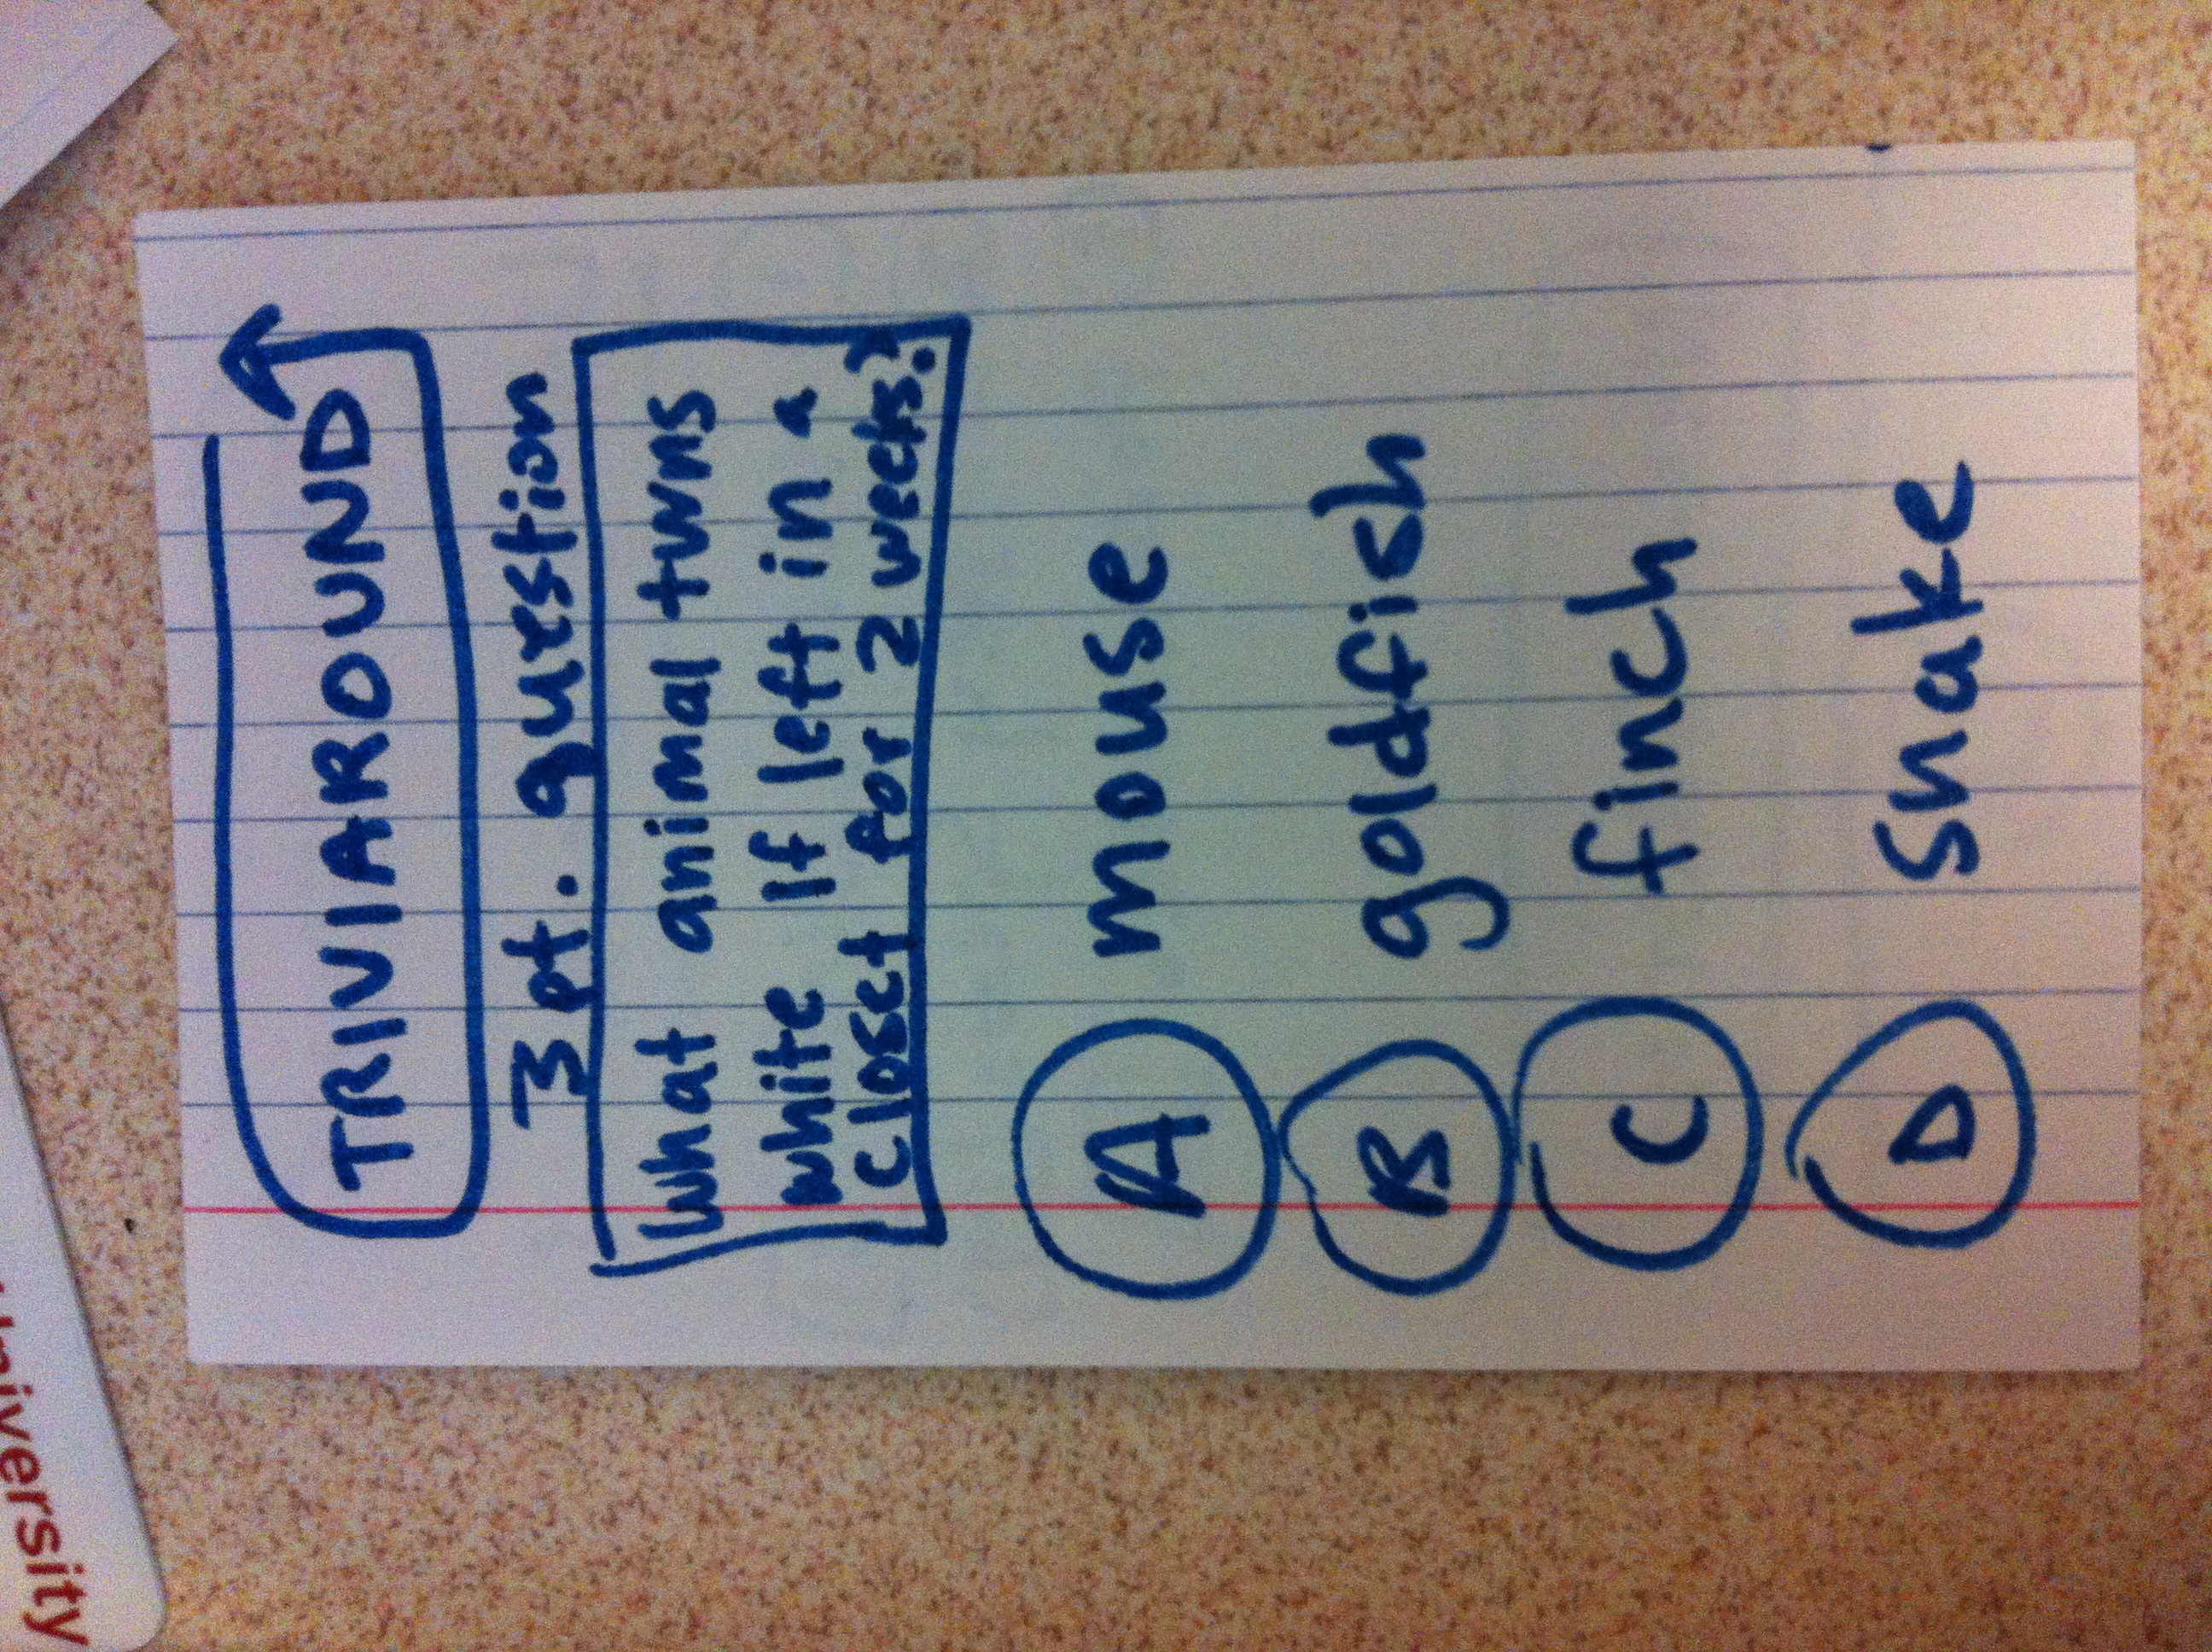 University
TRIVIAROUND
3pt. question
What animal turns
white If left in a
closet for 2 weeks?
A mouse
B goldfish
C finch
D snake